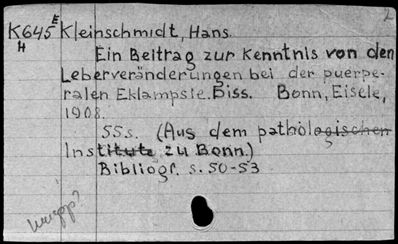 2
K645 E Kleinschmidt, Hans.
H
Ein Beitrag zur Kenntnis von den
Leberveränderungen bei der puerpe-
ralen Eklampsie. Diss. Bonn, Eisele,
1908.
55s. (Aus dem pathologischen
Institute zu Bonn.)
Bibliogr. s. 50-53